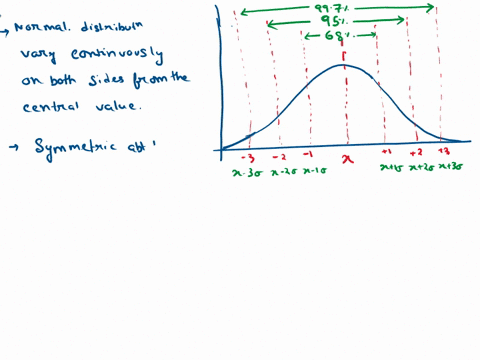 → Normal. distributn
vary continuously
on both sides from the
central value.
→ Symmetric abt
99.7%
95%
68%
-3 -2 -1 x +1 +2 +3
x-3σ x-2σ x-1σ x+1σ x+2σ x+3σ